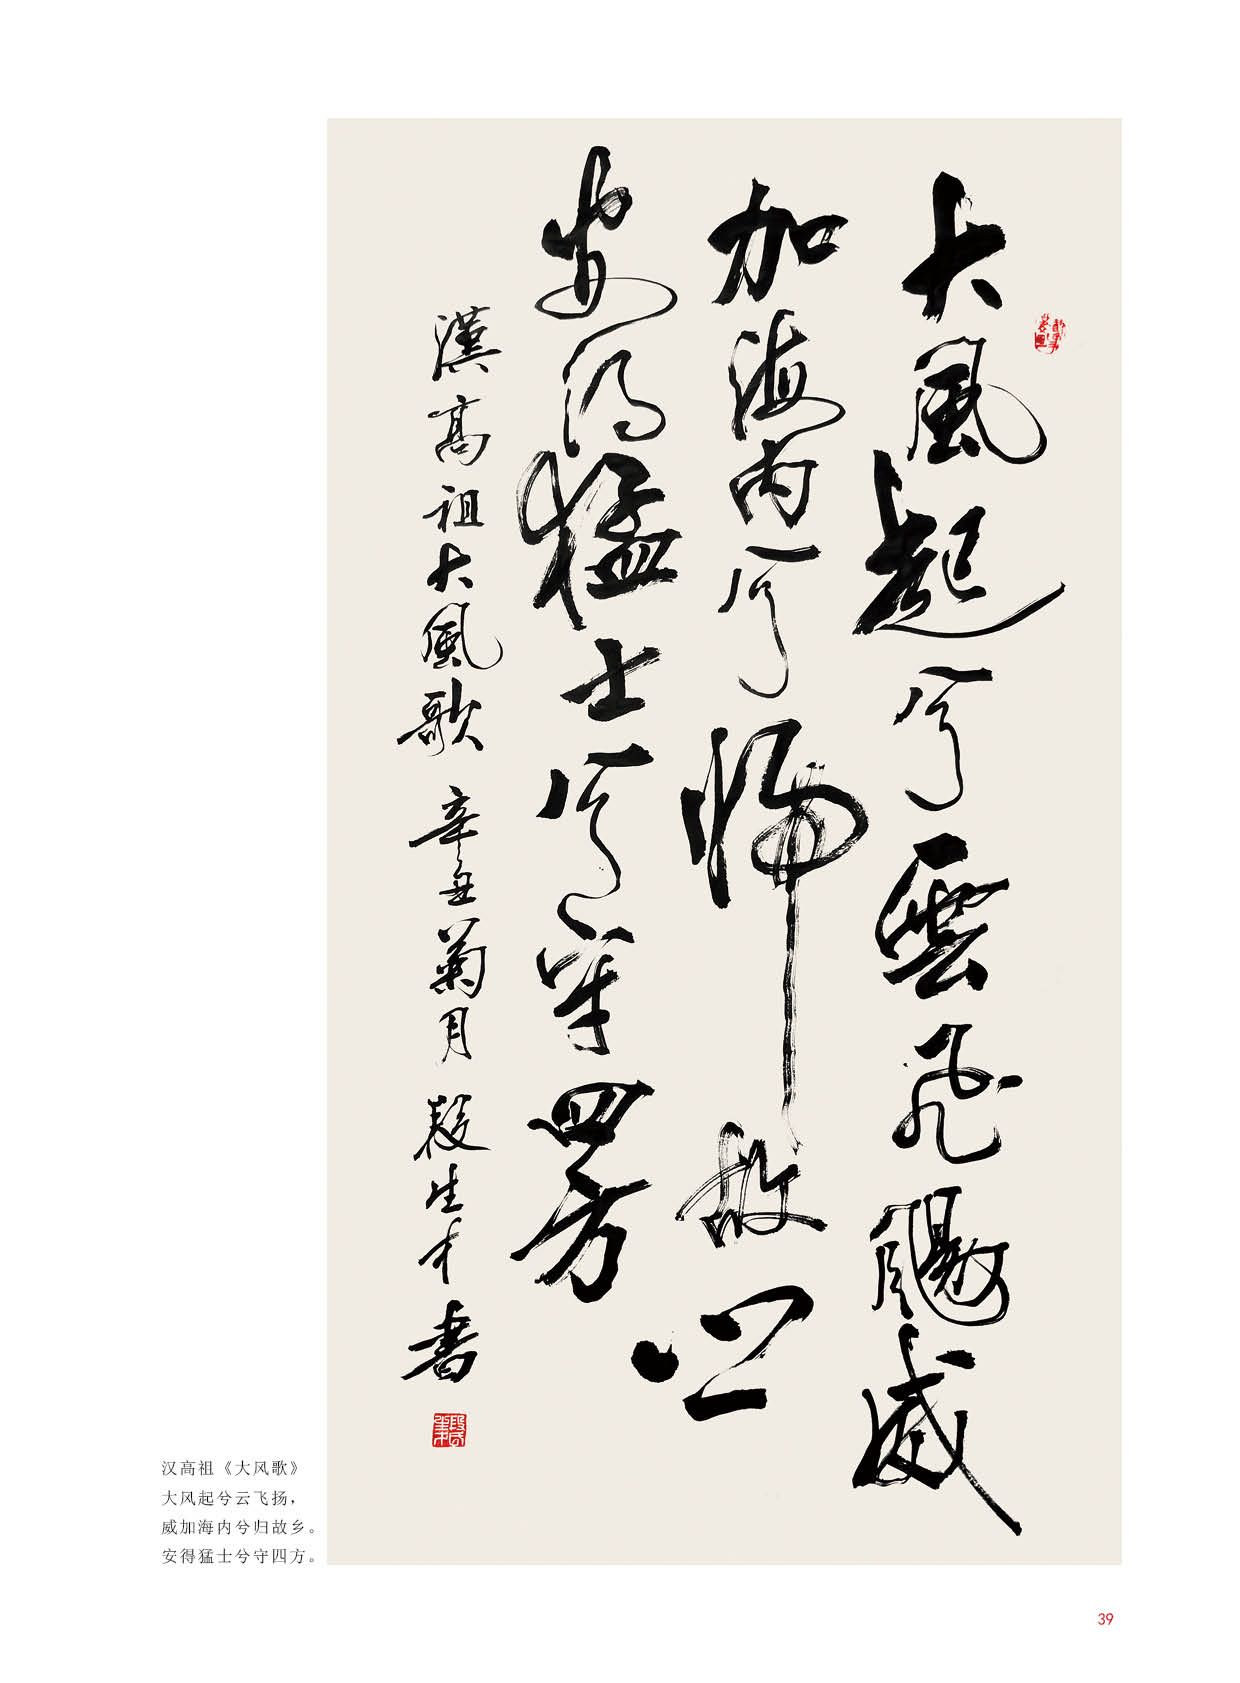 大風起兮雲飛颺威
加海内兮歸故鄉
安得猛士兮守四方
漢高祖大風歌 辛丑菊月 段生才書
汉高祖《大风歌》
大风起兮云飞扬，
威加海内兮归故乡。
安得猛士兮守四方。
39